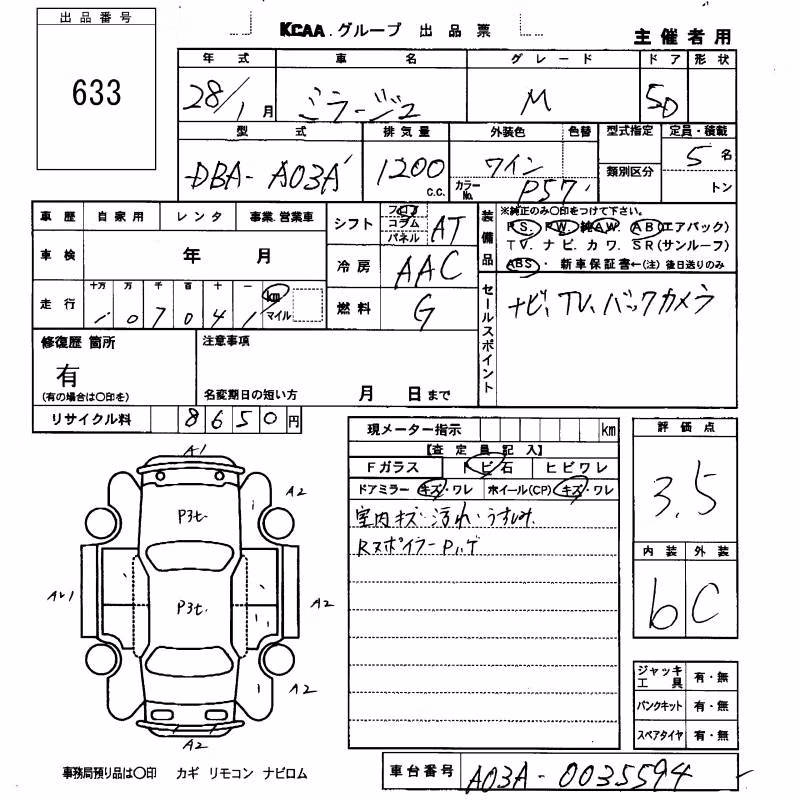 出品番号
633
KCAA.グループ 出品票
主催者用
年式 車名 グレード ドア 形状
28/1月 ミラージュ M 5D
型式 排気量 外装色 色替 型式指定 定員・積載
DBA-A03A 1200 c.c. ワイン カラーNo. P57 類別区分 5名 トン
車歴 自家用 レンタ 事業.営業車
車検 年 月
走行 十万 万 千 百 十 一 km マイル
1 0 7 0 4 1
シフト フロア コラム パネル AT
冷房 AAC
燃料 G
装備品
※純正のみ○印をつけて下さい。
P.S. P.W. 純A.W. A.B(エアバック)
T.V. ナビ.カワ. S.R(サンルーフ)
ABS・ 新車保証書←(注)後日送りのみ
セールスポイント
ナビ、TV、バックカメラ
修復歴 箇所
有
(有の場合は○印を)
注意事項
名変期日の短い方 月 日まで
リサイクル料 8650円
現メーター指示 km
【査定員記入】
Fガラス トビ石 ヒビワレ
ドアミラー キズ・ワレ ホイール(CP) キズ・ワレ
室内キズ・汚れ・うすしみ
Rスポイラー Pハゲ
評価点
3.5
内装 外装
b C
ジャッキ工具 有・無
パンクキット 有・無
スペアタイヤ 有・無
A1
A2
P3t.
A2
P3t.
A2
A2
事務局預り品は○印 カギ リモコン ナビロム
車台番号 A03A-0035594